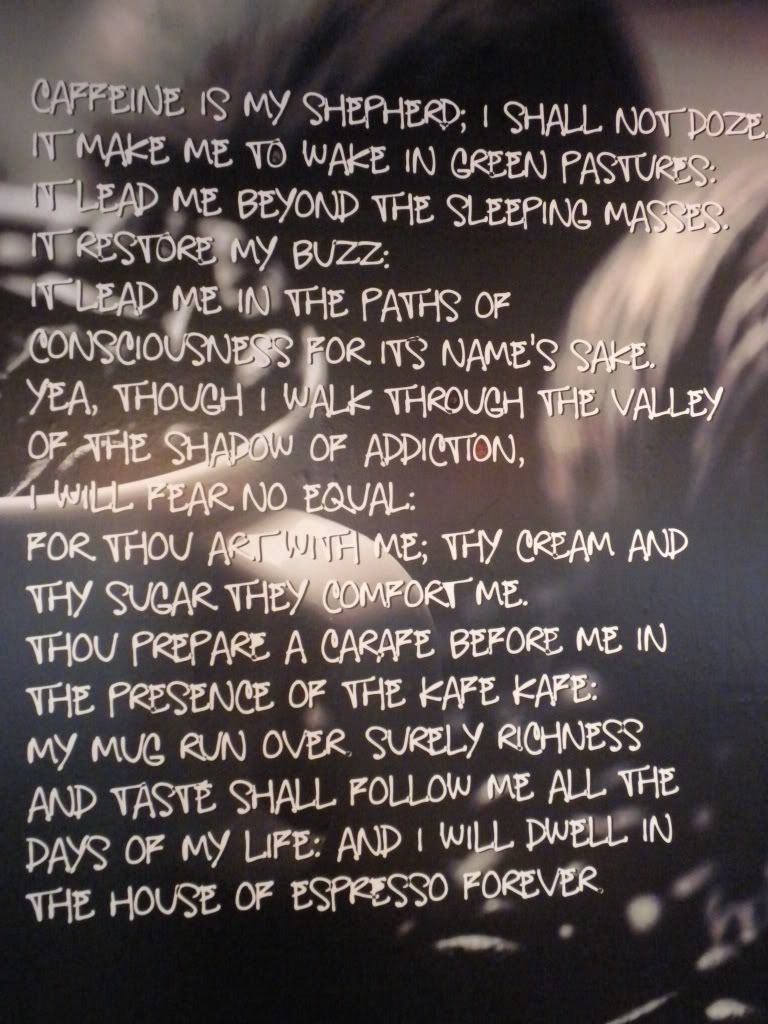 CAFFEINE IS MY SHEPHERD; I SHALL NOT DOZE.
IT MAKE ME TO WAKE IN GREEN PASTURES:
IT LEAD ME BEYOND THE SLEEPING MASSES.
IT RESTORE MY BUZZ:
IT LEAD ME IN THE PATHS OF
CONSCIOUSNESS FOR ITS NAME'S SAKE.
YEA, THOUGH I WALK THROUGH THE VALLEY
OF THE SHADOW OF ADDICTION,
I WILL FEAR NO EQUAL:
FOR THOU ART WITH ME; THY CREAM AND
THY SUGAR THEY COMFORT ME.
THOU PREPARE A CARAFE BEFORE ME IN
THE PRESENCE OF THE KAFE KAFE:
MY MUG RUN OVER. SURELY RICHNESS
AND TASTE SHALL FOLLOW ME ALL THE
DAYS OF MY LIFE: AND I WILL DWELL IN
THE HOUSE OF ESPRESSO FOREVER.